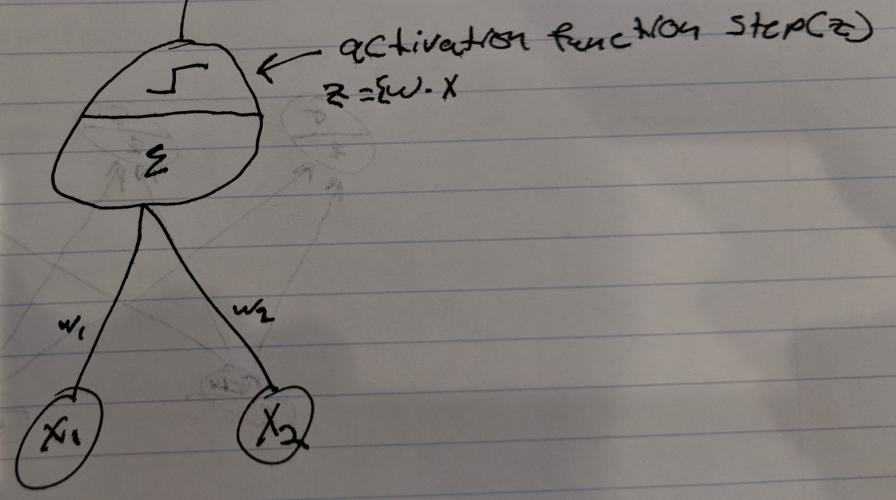 activation function step(z)
z = Σw · x
Σ
w1
w2
x1
x2